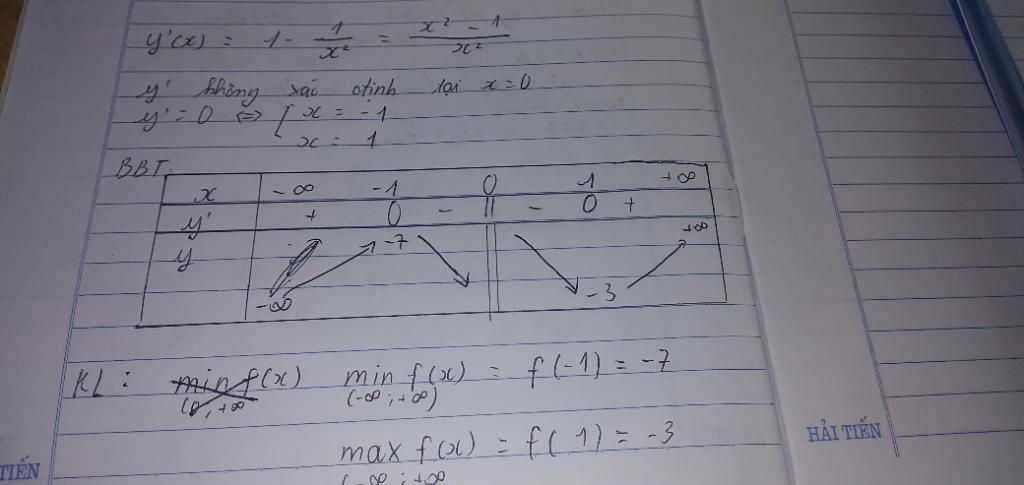 y'(x) = 1 - 1/x² = (x² - 1)/x²
y' không xác định tại x = 0
y' = 0 <=> [ x = -1
x = 1
BBT.
x -∞ -1 0 1 +∞
y' + 0 - || - 0 +
y -∞ -7 -3 +∞
KL: min f(x) min f(x) = f(-1) = -7
(0; +∞ (-∞; +∞)
max f(x) = f(1) = -3
(-∞; +∞
HẢI TIẾN
TIẾN